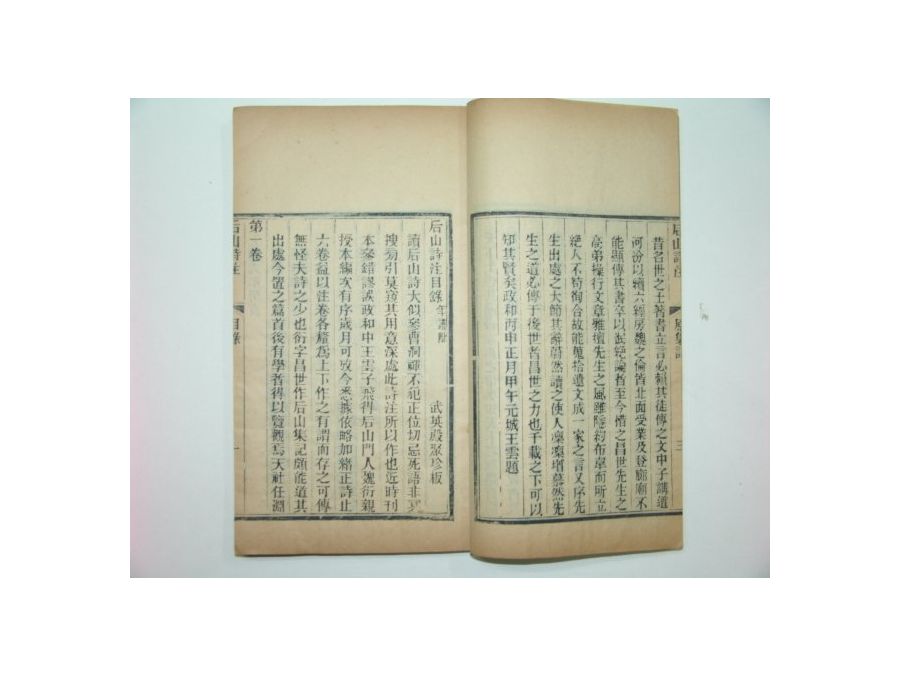 昔名世之士著書立言必賴其徒傳之文中子講道
河汾以續六經房魏之倫皆北面受業及登廊廟不
能顯傳其書卒以泯絕論者至今惜之昌世先生之
高弟操行文章雅壇先生之風雖隱約布韋而所立
絕人不苟徇合故能蒐拾遺文成一家之言又序先
生出處之大節其辭蔚然讀之使人凜凜增慕然先
生之道必傳于後世者昌世之力也千載之下可以
知其賢矣政和丙申正月甲午元城王雲題
后山詩注目錄年譜附
武英殿聚珍板
讀后山詩大似參曹洞禪不犯正位切忌死語非冥
搜旁引莫窺其用意深處此詩注所以作也近時刊
本參錯謬誤政和中王雲子飛得后山門人魏衍親
授本編次有序歲月可攷今悉據依略加緒正詩止
六卷益以注卷各釐爲上下作之有謂而存之可傳
無怪夫詩之少也衍字昌世作后山集記頗能道其
出處今置之篇首後有學者得以覽觀焉天社任淵
第一卷
后山詩注
目錄
一